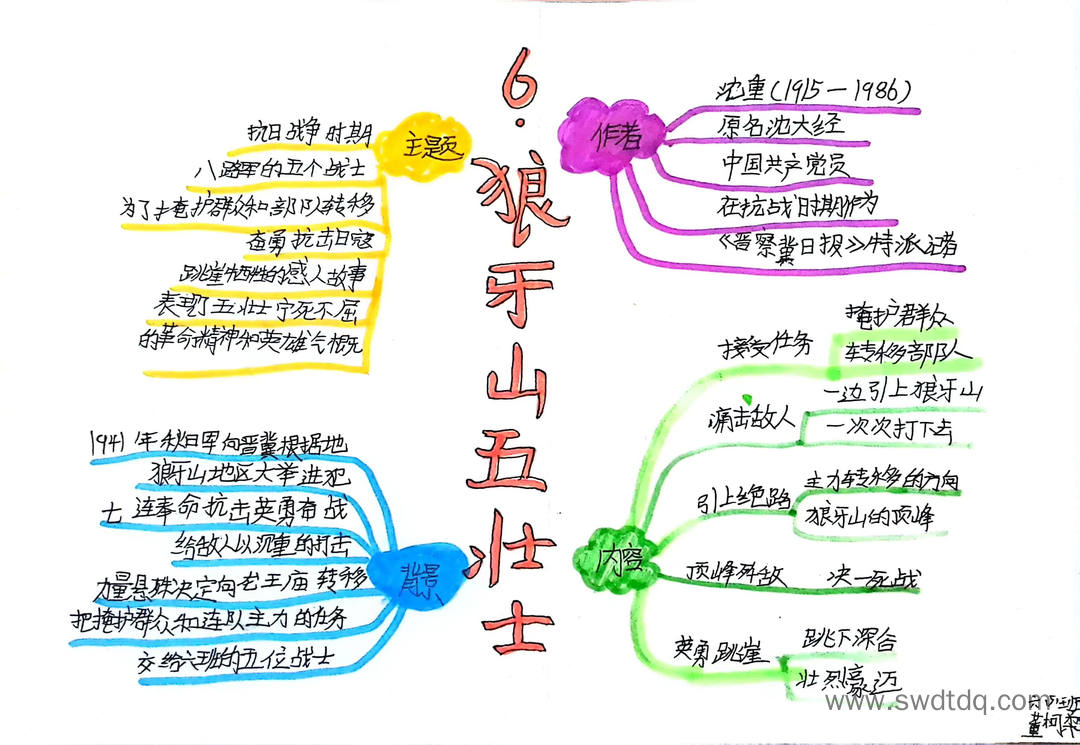 6.
狼牙山五壮士
主题
抗日战争时期
八路军的五个战士
为了掩护群众和部队转移
奋勇抗击日寇
跳崖牺牲的感人故事
表现了五壮士宁死不屈
的革命精神和英雄气概
作者
沈重(1915—1986)
原名沈大经
中国共产党员
在抗战时期作为
《晋察冀日报》特派记者
背景
1941年秋日军向晋冀根据地
狼牙山地区大举进犯
七连奉命抗击英勇奋战
给敌人以沉重的打击
力量悬殊决定向龙王庙转移
把掩护群众和连队主力的任务
交给六班的五位战士
内容
接受任务
掩护群众
转移部队人
痛击敌人
一边引上狼牙山
一次次打下去
引上绝路
主力转移的方向
狼牙山的顶峰
顶峰歼敌
决一死战
英勇跳崖
跳下深合
壮烈豪迈
www.swdtdq.com